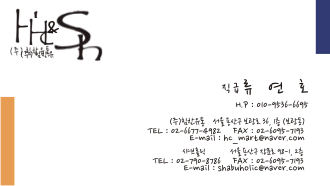 H&Sh
(주)힘찬유통
직급 류 연 호
H.P : 010-9536-6695
(주)힘찬유통 서울 용산구 보광로 36, 1층 (보광동)
TEL : 02-6677-4982 FAX : 02-6095-7193
E-mail : hc_mart@naver.com
샤브홀릭 서울 용산구 장문로 98-1, 2층
TEL : 02-790-8786 FAX : 02-6095-7193
E-mail : shabuholic@naver.com